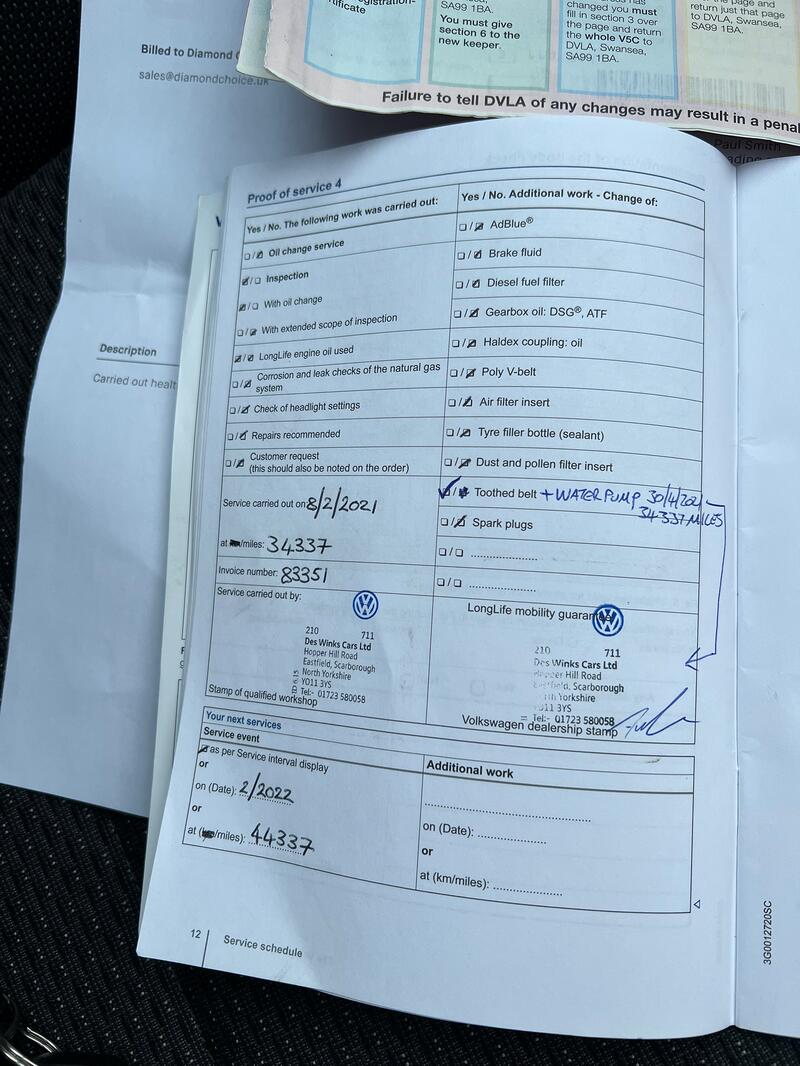 egistration
tificate
SA99 1BA.
You must give
section 6 to the
new keeper.
changed you must
fill in section 3 over
the page and return
the whole V5C to
DVLA, Swansea,
SA99 1BA.
page and
return just that page
to DVLA, Swansea,
SA99 1BA.
Failure to tell DVLA of any changes may result in a penal
Paul Smith
Billed to Diamond
sales@diamondchoice.uk
Description
Carried out healt
Proof of service 4
Yes / No. The following work was carried out:
Oil change service
Inspection
With oil change
With extended scope of inspection
LongLife engine oil used
Corrosion and leak checks of the natural gas
system
Check of headlight settings
Repairs recommended
Customer request
(this should also be noted on the order)
Service carried out on 8/2/2021
at /miles: 34337
Invoice number: 83351
Service carried out by:
210 711
Des Winks Cars Ltd
Hopper Hill Road
Eastfield, Scarborough
North Yorkshire
YO11 3YS
Tel:- 01723 580058
Stamp of qualified workshop
Yes / No. Additional work - Change of:
AdBlue®
Brake fluid
Diesel fuel filter
Gearbox oil: DSG®, ATF
Haldex coupling: oil
Poly V-belt
Air filter insert
Tyre filler bottle (sealant)
Dust and pollen filter insert
Toothed belt + WATER PUMP 30/4/2021
34337 MILES
Spark plugs
LongLife mobility guarantee
210 711
Des Winks Cars Ltd
Hopper Hill Road
Eastfield, Scarborough
North Yorkshire
YO11 3YS
Tel:- 01723 580058
Volkswagen dealership stamp
Your next services
Service event
as per Service interval display
or
on (Date): 2/2022
or
at ( /miles): 44337
Additional work
on (Date):
or
at (km/miles):
12 Service schedule
3G0012720SC